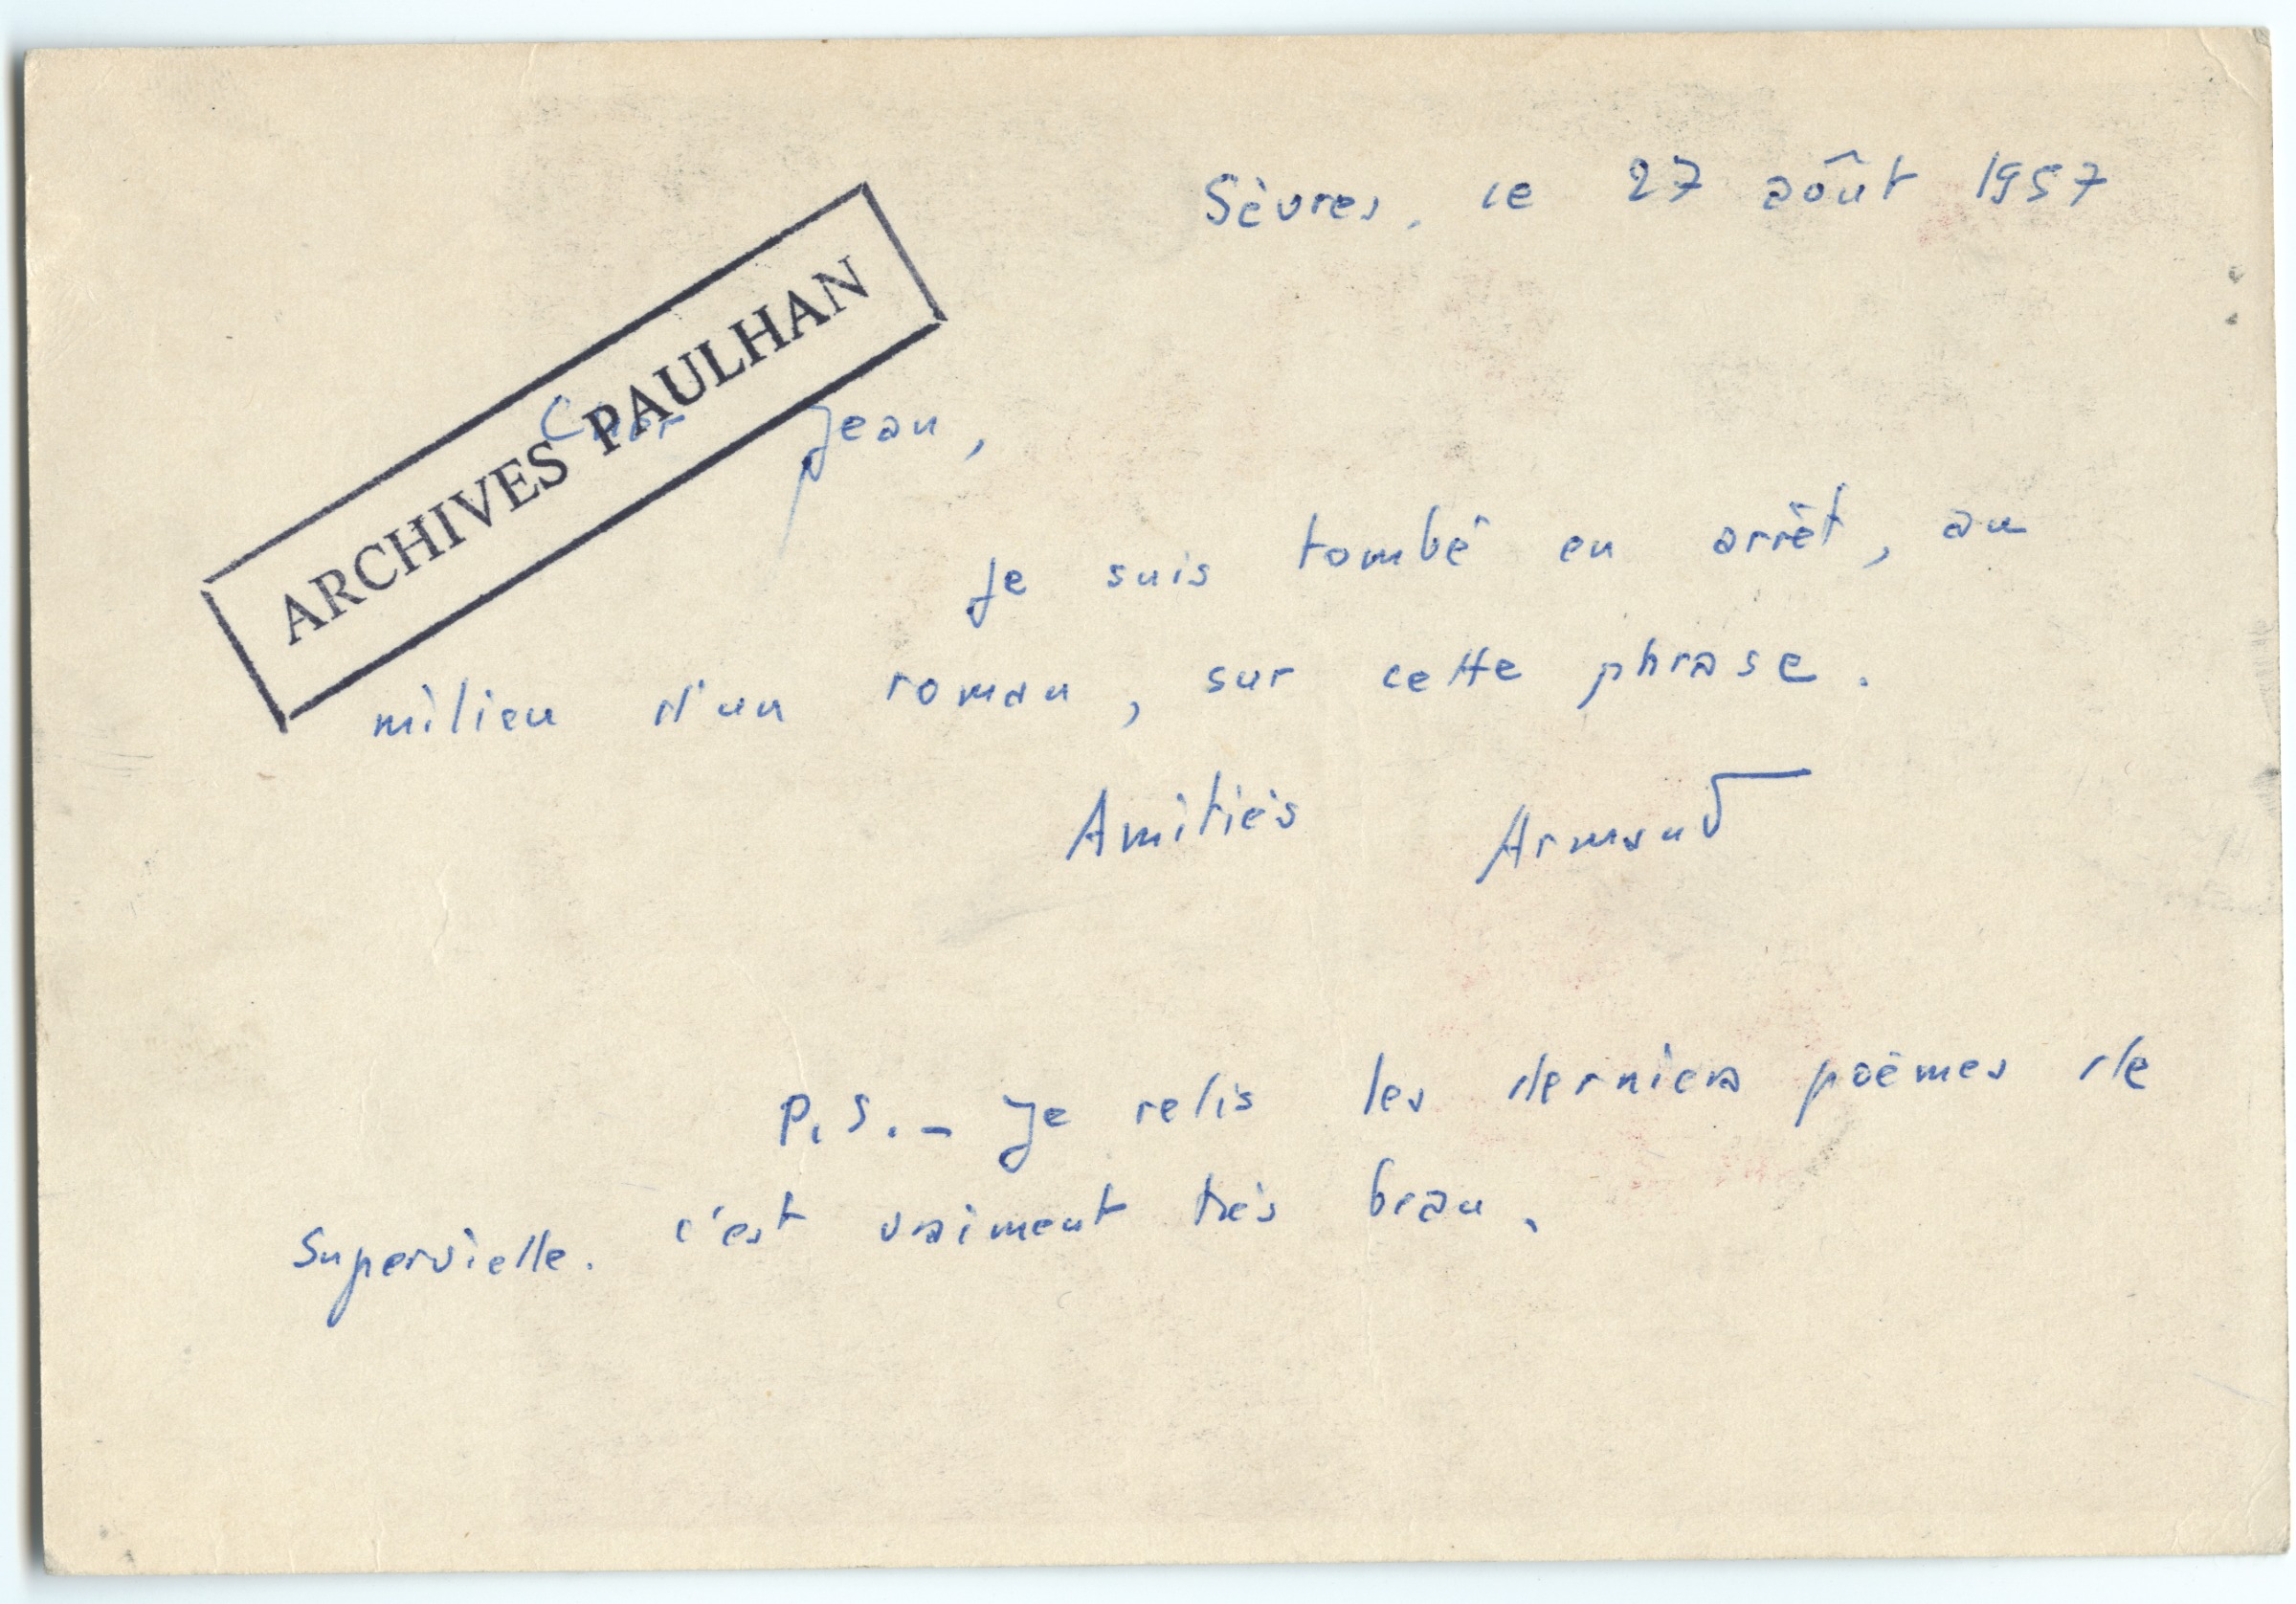 Sèvres, ce 27 août 1957
ARCHIVES PAULHAN
Cher Jean,
Je suis tombé en arrêt, au
milieu d'un roman, sur cette phrase.
Amitiés Armand
P.S. — Je relis les derniers poèmes de
Supervielle. c'est vraiment très beau.